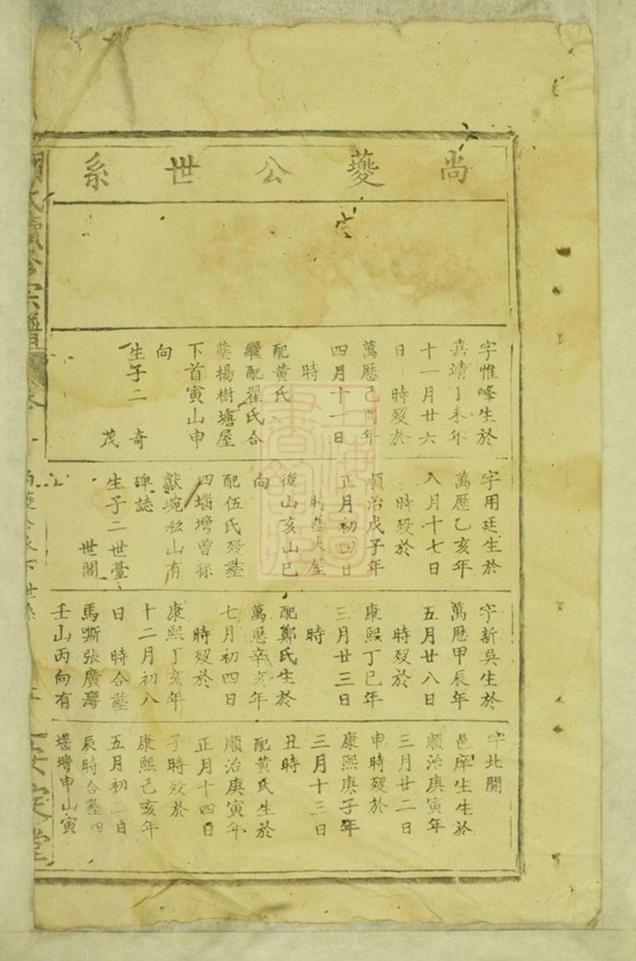 尚夔公世系
字惟峰生於
嘉靖丁未年
十一月廿六
日　時歿於
萬歷己酉年
四月十一日
時
配黄氏
繼配翟氏合
塟楊樹塘屋
下首寅山申
向
生子二　奇
茂
字用廷生於
萬歷乙亥年
八月十七日
時歿於
順治戊子年
正月初四日
時塟大屋
後山亥山巳
向
配伍氏歿塟
四墩塆曾孫
献琬私山有
碑誌
生子二世臺
世閣
字新吳生於
萬歷甲辰年
五月廿八日
時歿於
康熙丁巳年
三月廿三日
時
配鄭氏生於
萬歷辛亥年
七月初四日
時歿於
康熙丁亥年
十二月初八
日　時合塟
馬嘶張廣灣
壬山丙向有
字北開
邑庠生生於
順治庚寅年
三月廿二日
申時歿於
康熙庚子年
三月十三日
丑時
配黄氏生於
順治庚寅年
正月十四日
子時歿於
康熙己亥年
五月初二日
辰時合塟四
塆申山寅
氏續修宗譜
安定堂